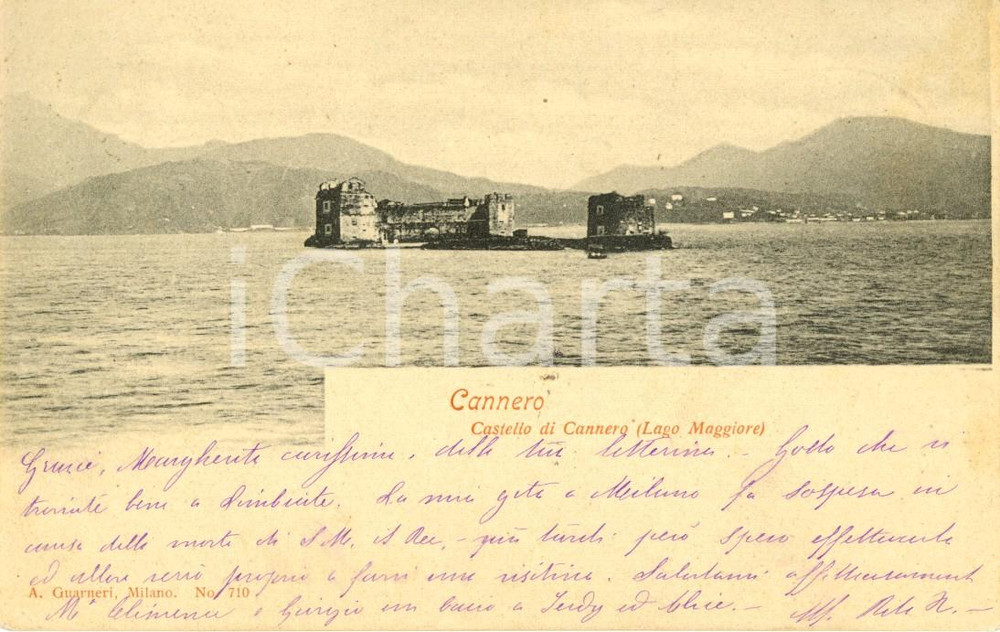 iCharta
Cannero
Castello di Cannero (Lago Maggiore)
Grazie, Margherita carissima, della tua letterina. - Godo che vi
troviate bene a Limbiate. La mia gita a Milano fu sospesa in
causa della morte di S. M. il Re, - più tardi però spero effettuarla
ed allora verrò proprio a farvi una visitina. Salutami affettuosamente
A. Guarneri, Milano. No 710
Mª Clemenza e Giorgio un bacio a Ferdy ed Alice. - Aff.